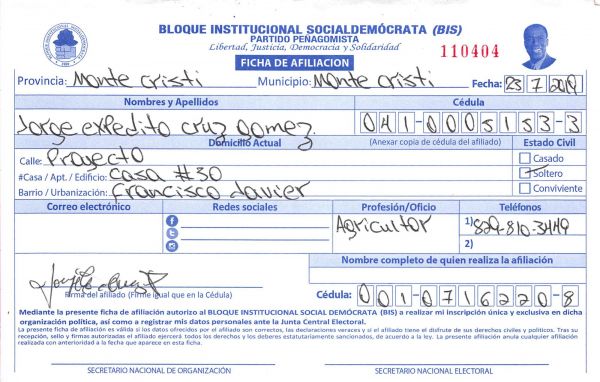 BLOQUE INSTITUCIONAL SOCIALDEMÓCRATA (BIS)
PARTIDO PEÑAGOMISTA
Libertad, Justicia, Democracia y Solidaridad
FICHA DE AFILIACION
110404
Provincia: Monte Cristi Municipio: Monte Cristi Fecha: 23 7 2019
Nombres y Apellidos Cédula
Jorge expedito cruz gomez. 041-0005153-3
Domicilio Actual (Anexar copia de cédula del afiliado) Estado Civil
Calle: Proyecto Casado
#Casa / Apt. / Edificio: Casa #30 Soltero
Barrio / Urbanización: Francisco Javier Conviviente
Correo electrónico Redes sociales Profesión/Oficio Teléfonos
Agricultor 1) 829-810-3449
2)
Nombre completo de quien realiza la afiliación
Firma del afiliado (Firme igual que en la Cédula) Cédula: 001-0716220-8
Mediante la presente ficha de afiliación autorizo al BLOQUE INSTITUCIONAL SOCIAL DEMÓCRATA (BIS) a realizar mi inscripción única y exclusiva en dicha
organización política, así como a registrar mis datos personales ante la Junta Central Electoral.
La presente ficha de afiliación es válida si los datos ofrecidos por el afiliado son correctos, las declaraciones veraces y si el afiliado tiene el disfrute de sus derechos civiles y políticos. Tras su
recepción, sello y firmas autorizadas el afiliado ejercerá todos los derechos y los deberes estatutariamente sancionados, de acuerdo a la ley. La presente afiliación anula cualquier afiliación
realizada con anterioridad a la fecha que aparece en esta ficha.
SECRETARIO NACIONAL DE ORGANIZACIÓN SECRETARIO NACIONAL ELECTORAL